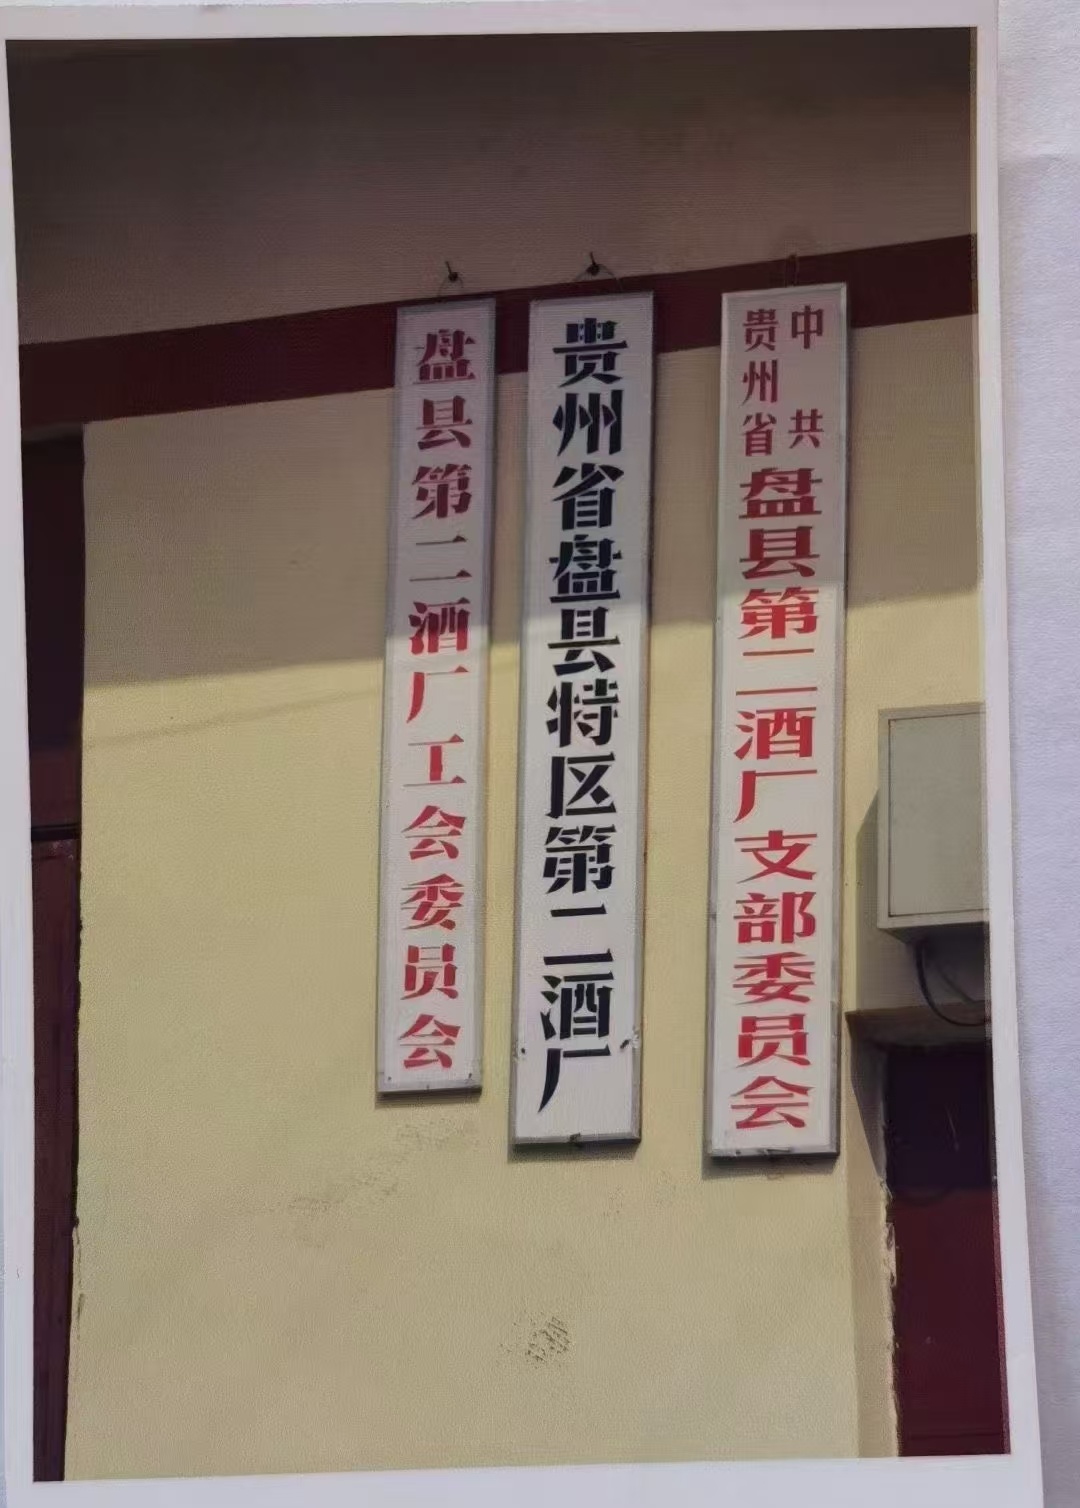 盘县第二酒厂工会委员会
贵州省盘县特区第二酒厂
中共
贵州省
盘县第二酒厂支部委员会